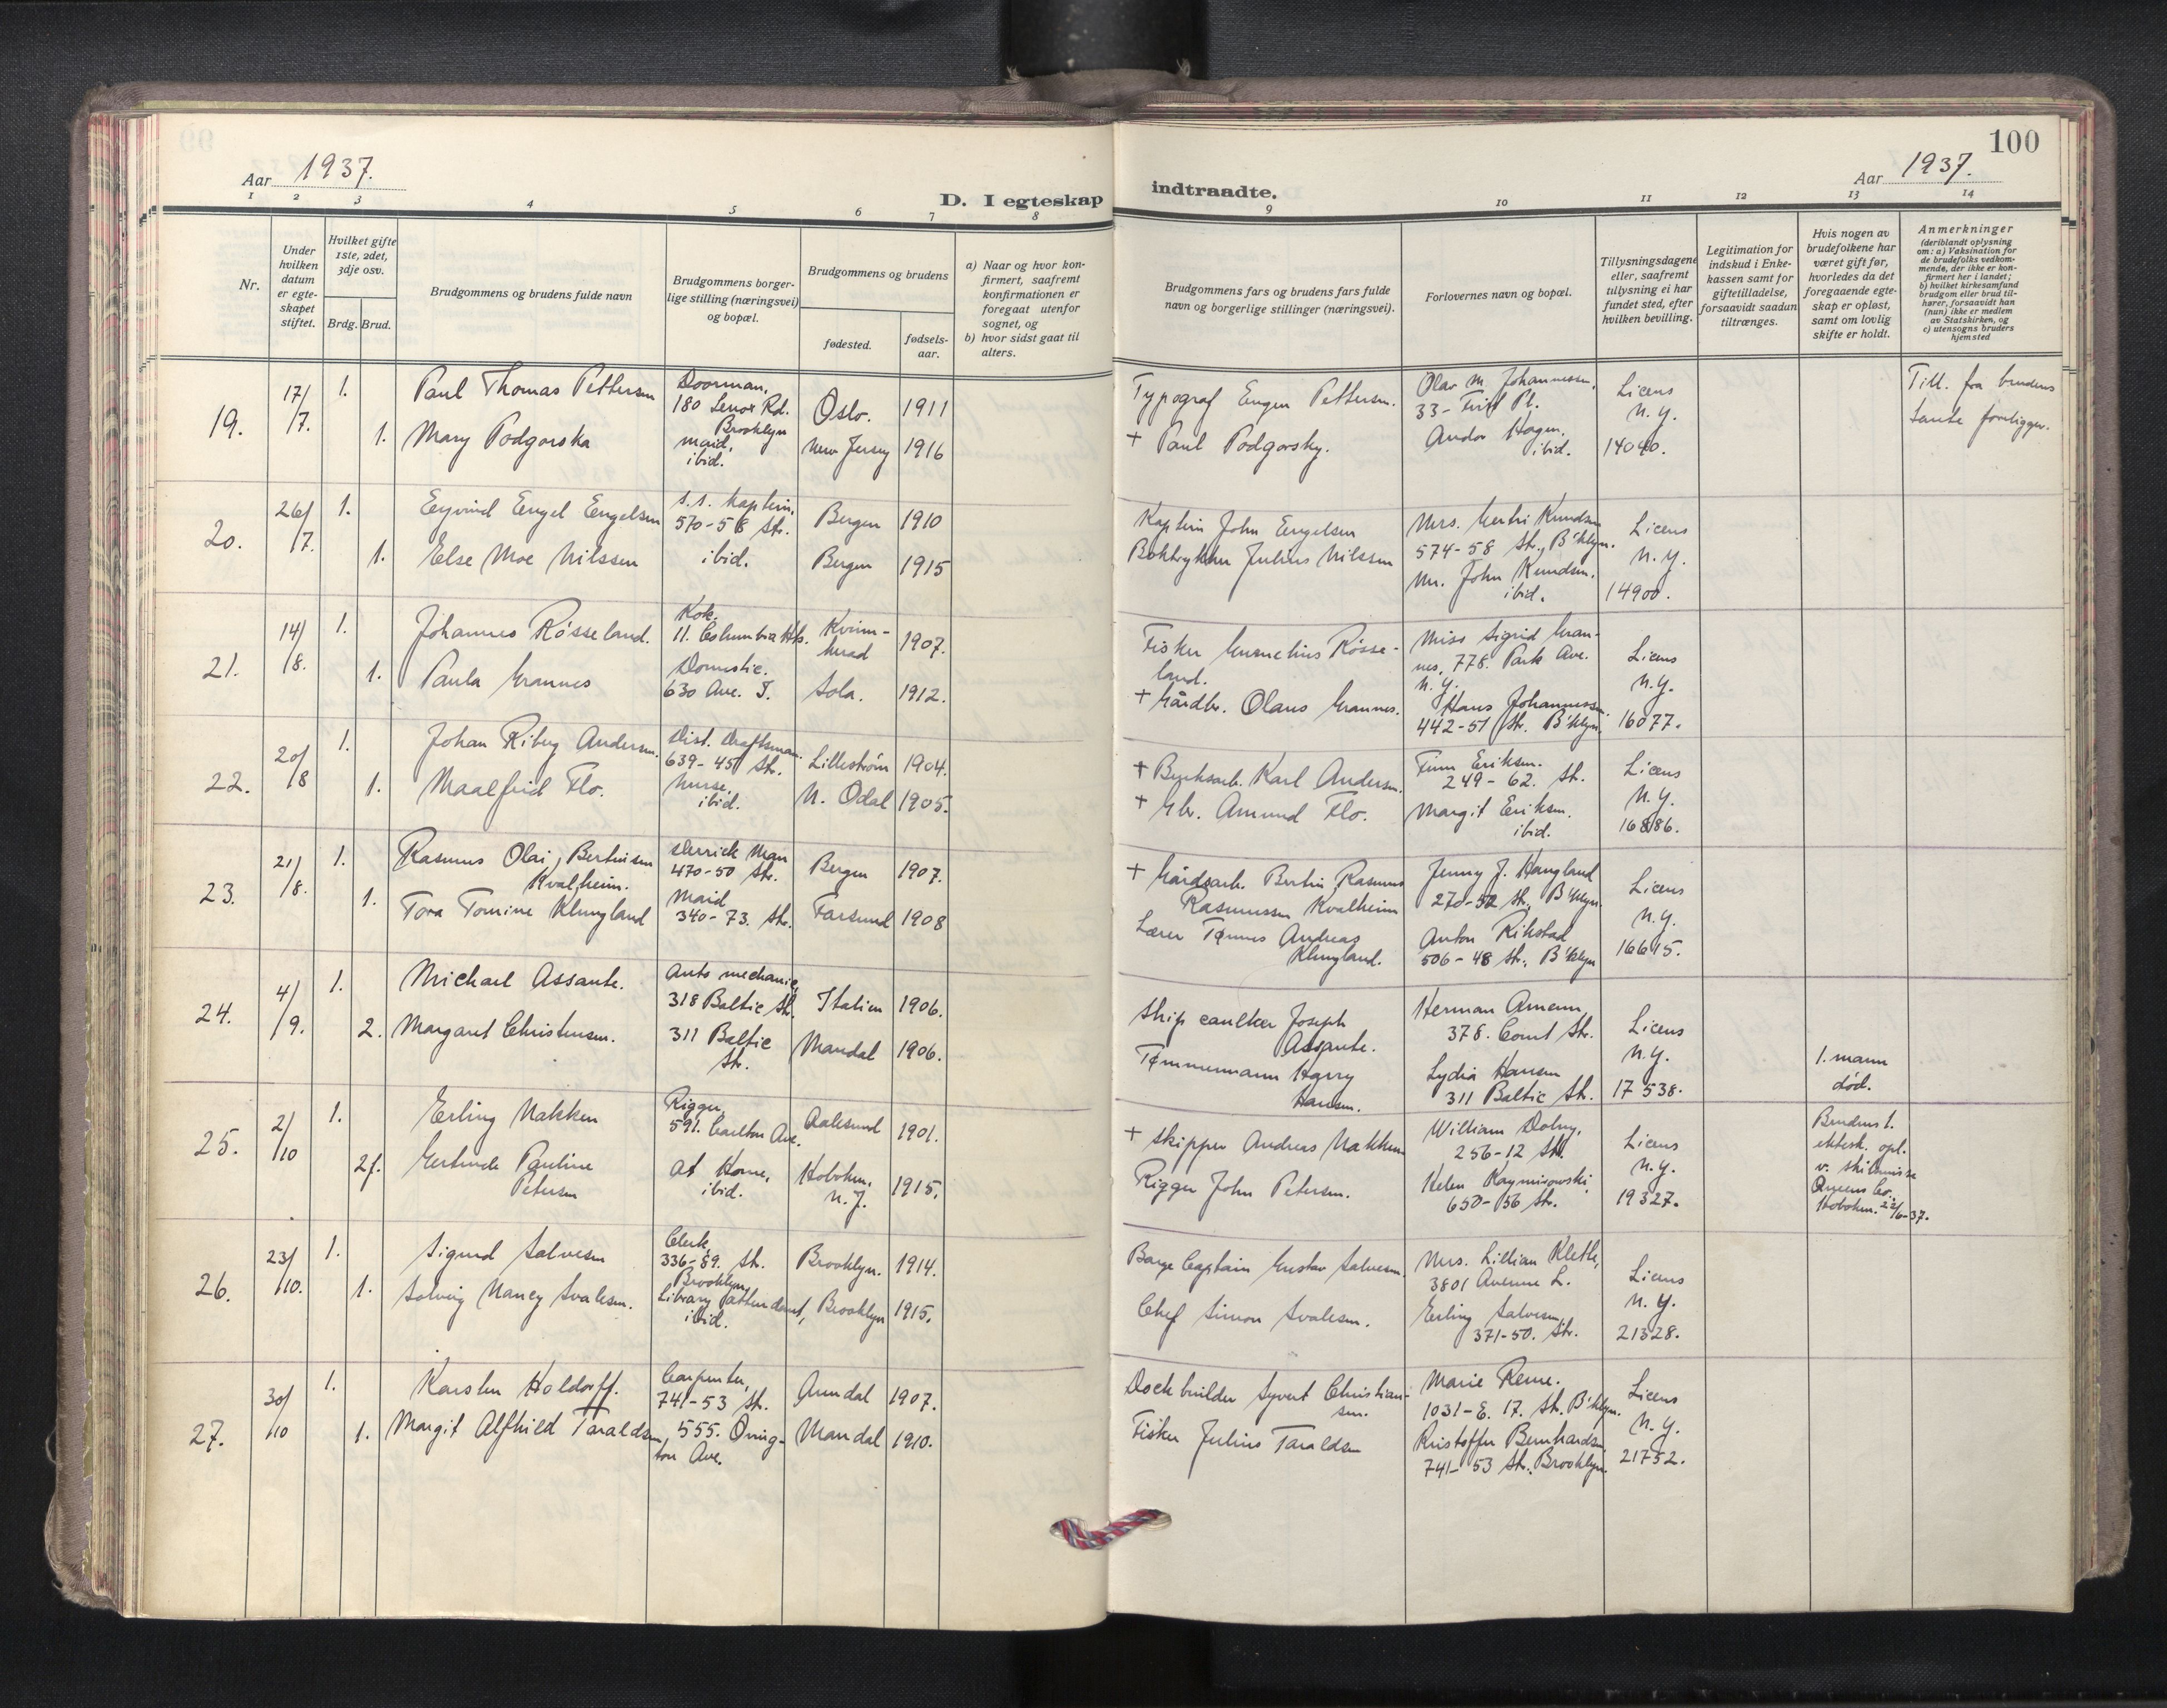 100
Aar 1937.
D. I egteskap indtraadte.
Aar 1937.
1 2 3 4 5 6 7 8 9 10 11 12 13 14
Nr.
Under hvilken datum er egteskapet stiftet.
Hvilket gifte 1ste, 2det, 3dje osv.
Brdg. Brud.
Brudgommens og brudens fulde navn
Brudgommens borgerlige stilling (næringsvei) og bopæl.
Brudgommens og brudens
fødested.
fødselsaar.
a) Naar og hvor konfirmert, saafremt konfirmationen er foregaat utenfor sognet, og
b) hvor sidst gaat til alters.
Brudgommens fars og brudens fars fulde navn og borgerlige stillinger (næringsvei).
Forlovernes navn og bopæl.
Tillysningsdagene eller, saafremt tillysning ei har fundet sted, efter hvilken bevilling.
Legitimation for indskud i Enkekassen samt for giftetilladelse, forsaavidt saadan tiltrænges.
Hvis nogen av brudefolkene har været gift før, hvorledes da det foregaaende egteskap er opløst, samt om lovlig skifte er holdt.
Anmerkninger
(deriblandt oplysning om: a) Vaksination for de brudefolks vedkommende, der ikke er konfirmert her i landet; b) hvilket kirkesamfund brudgom eller brud tilhører, forsaavidt han (hun) ikke er medlem av Statskirken, og c) utensogns bruders hjemsted
19. 17/7. 1. Paul Thomas Pettersen Doorman, 180 Lenox Rd. Brooklyn Oslo. 1911
1. Mary Podgorska maid, ibid. New Jersey 1916
Typograf Eugen Pettersen.
+ Paul Podgorsky.
Olav M. Johannessen,
33- Pl.
Andor Hagen,
ibid.
Licens
N.Y.
14040.
Till. fra brudens
tante foreligger.
20. 26/7. 1. Eyvind Engel Engelsen s.s. kaptein, 570-58 Str. Bergen 1910
1. Else Moe Nilssen ibid. Bergen 1915
Kaptein John Engelsen
Boktrykker Julius Nilssen
Mrs. Gertri Knudsen
574-58 Str., B'klyn.
Mr. John Knudsen.
ibid.
Licens
N.Y.
14900.
21. 14/8. 1. Johannes Røsseland. Kok, 11. Columbia Hts. Kvinnherad 1907.
1. Paula Grannes Domestic. 630 Ave. T. Sola. 1912.
Fisker Gurnelius Røsseland.
+ Gårdbr. Olaus Grannes.
Miss Sigrid Grannes, 778. Park Ave.
N.Y.
Hans Johannessen.
442-51 Str. B'klyn.
Licens
N.Y.
16077.
22. 20/8 1. Johan Riberg Andersen. Dist. Draftsman. 639-45 Str. Lillestrøm 1904.
1. Maalfrid Flo. Nurse, ibid. N. Odal 1905.
+ Bruksarb. Karl Andersen.
+ Gbr. Amund Flo.
Finn Eriksen.
249-62. Str.
Margit Eriksen.
ibid.
Licens
N.Y.
16886.
23. 21/8. 1. Rasmus Olai Bertinsen Kvalheim. Derrick Man 470-50 Str. Bergen 1907.
1. Tora Tomine Klungland Maid 340-73. Str. Farsund 1908
+ Gårdsarb. Bertin Rasmus
Rasmussen Kvalheim
Lærer Tønnes Andreas
Klungland.
Jenny J. Haugland
270-52 Str., B'klyn.
Anton Rikstad
506-48 Str., B'klyn
Licens
N.Y.
16615.
24. 4/9. 1. Michael Assante. Auto mechanic, 318 Baltic Str. Italien 1906.
2. Margaret Christensen. 311 Baltic Str. Mandal 1906.
Ship caulker Joseph
Assante.
Tømmermann Harry
Hansen.
Herman Amenn
378. Court Str.
Lydia Hansen
311 Baltic Str.
Licens
N.Y.
17538.
1. mann
død.
25. 2/10 1. Erling Nakken Rigger, 591. Carlton Ave. Aalesund 1901.
2f. Gertrude Pauline Petersen At Home, ibid. Hoboken, N.J. 1915.
+ Skipper Andreas Nakken
Rigger John Petersen.
William Dolny,
256-12 Str.
Helen Kaymirowski,
650-56 Str.
Licens
N.Y.
19327.
Brudens 1.
ektesk. opl.
v. skilsmisse
Queens Co.
Hoboken. 22/6-37.
26. 23/10. 1. Sigurd Salvesen Clerk, 336-89. Str. Brooklyn Brooklyn. 1914.
1. Solveig Nancy Svalesen. Library attendant, ibid. Brooklyn 1915.
Barge Captain Gustav Salvesen.
Chef Simon Svalesen.
Mrs. Lillian Klette,
3801 Avenue L.
Erling Salvesen,
371-50. Str.
Licens
N.Y.
21328.
27. 30/10 1. Karsten Holdorff. Carpenter, 741-53 Str. Arendal 1907.
1. Margit Alfhild Taraldsen, 555. Ovington Ave. Mandal 1910.
Dock builder Syvert Christiansen.
Fisker Julius Taraldsen
Marie Reme.
1031-E. 17. Str. B'klyn.
Kristoffer Bernhardsen
741-53 Str., Brooklyn.
Licens
N.Y.
21752.